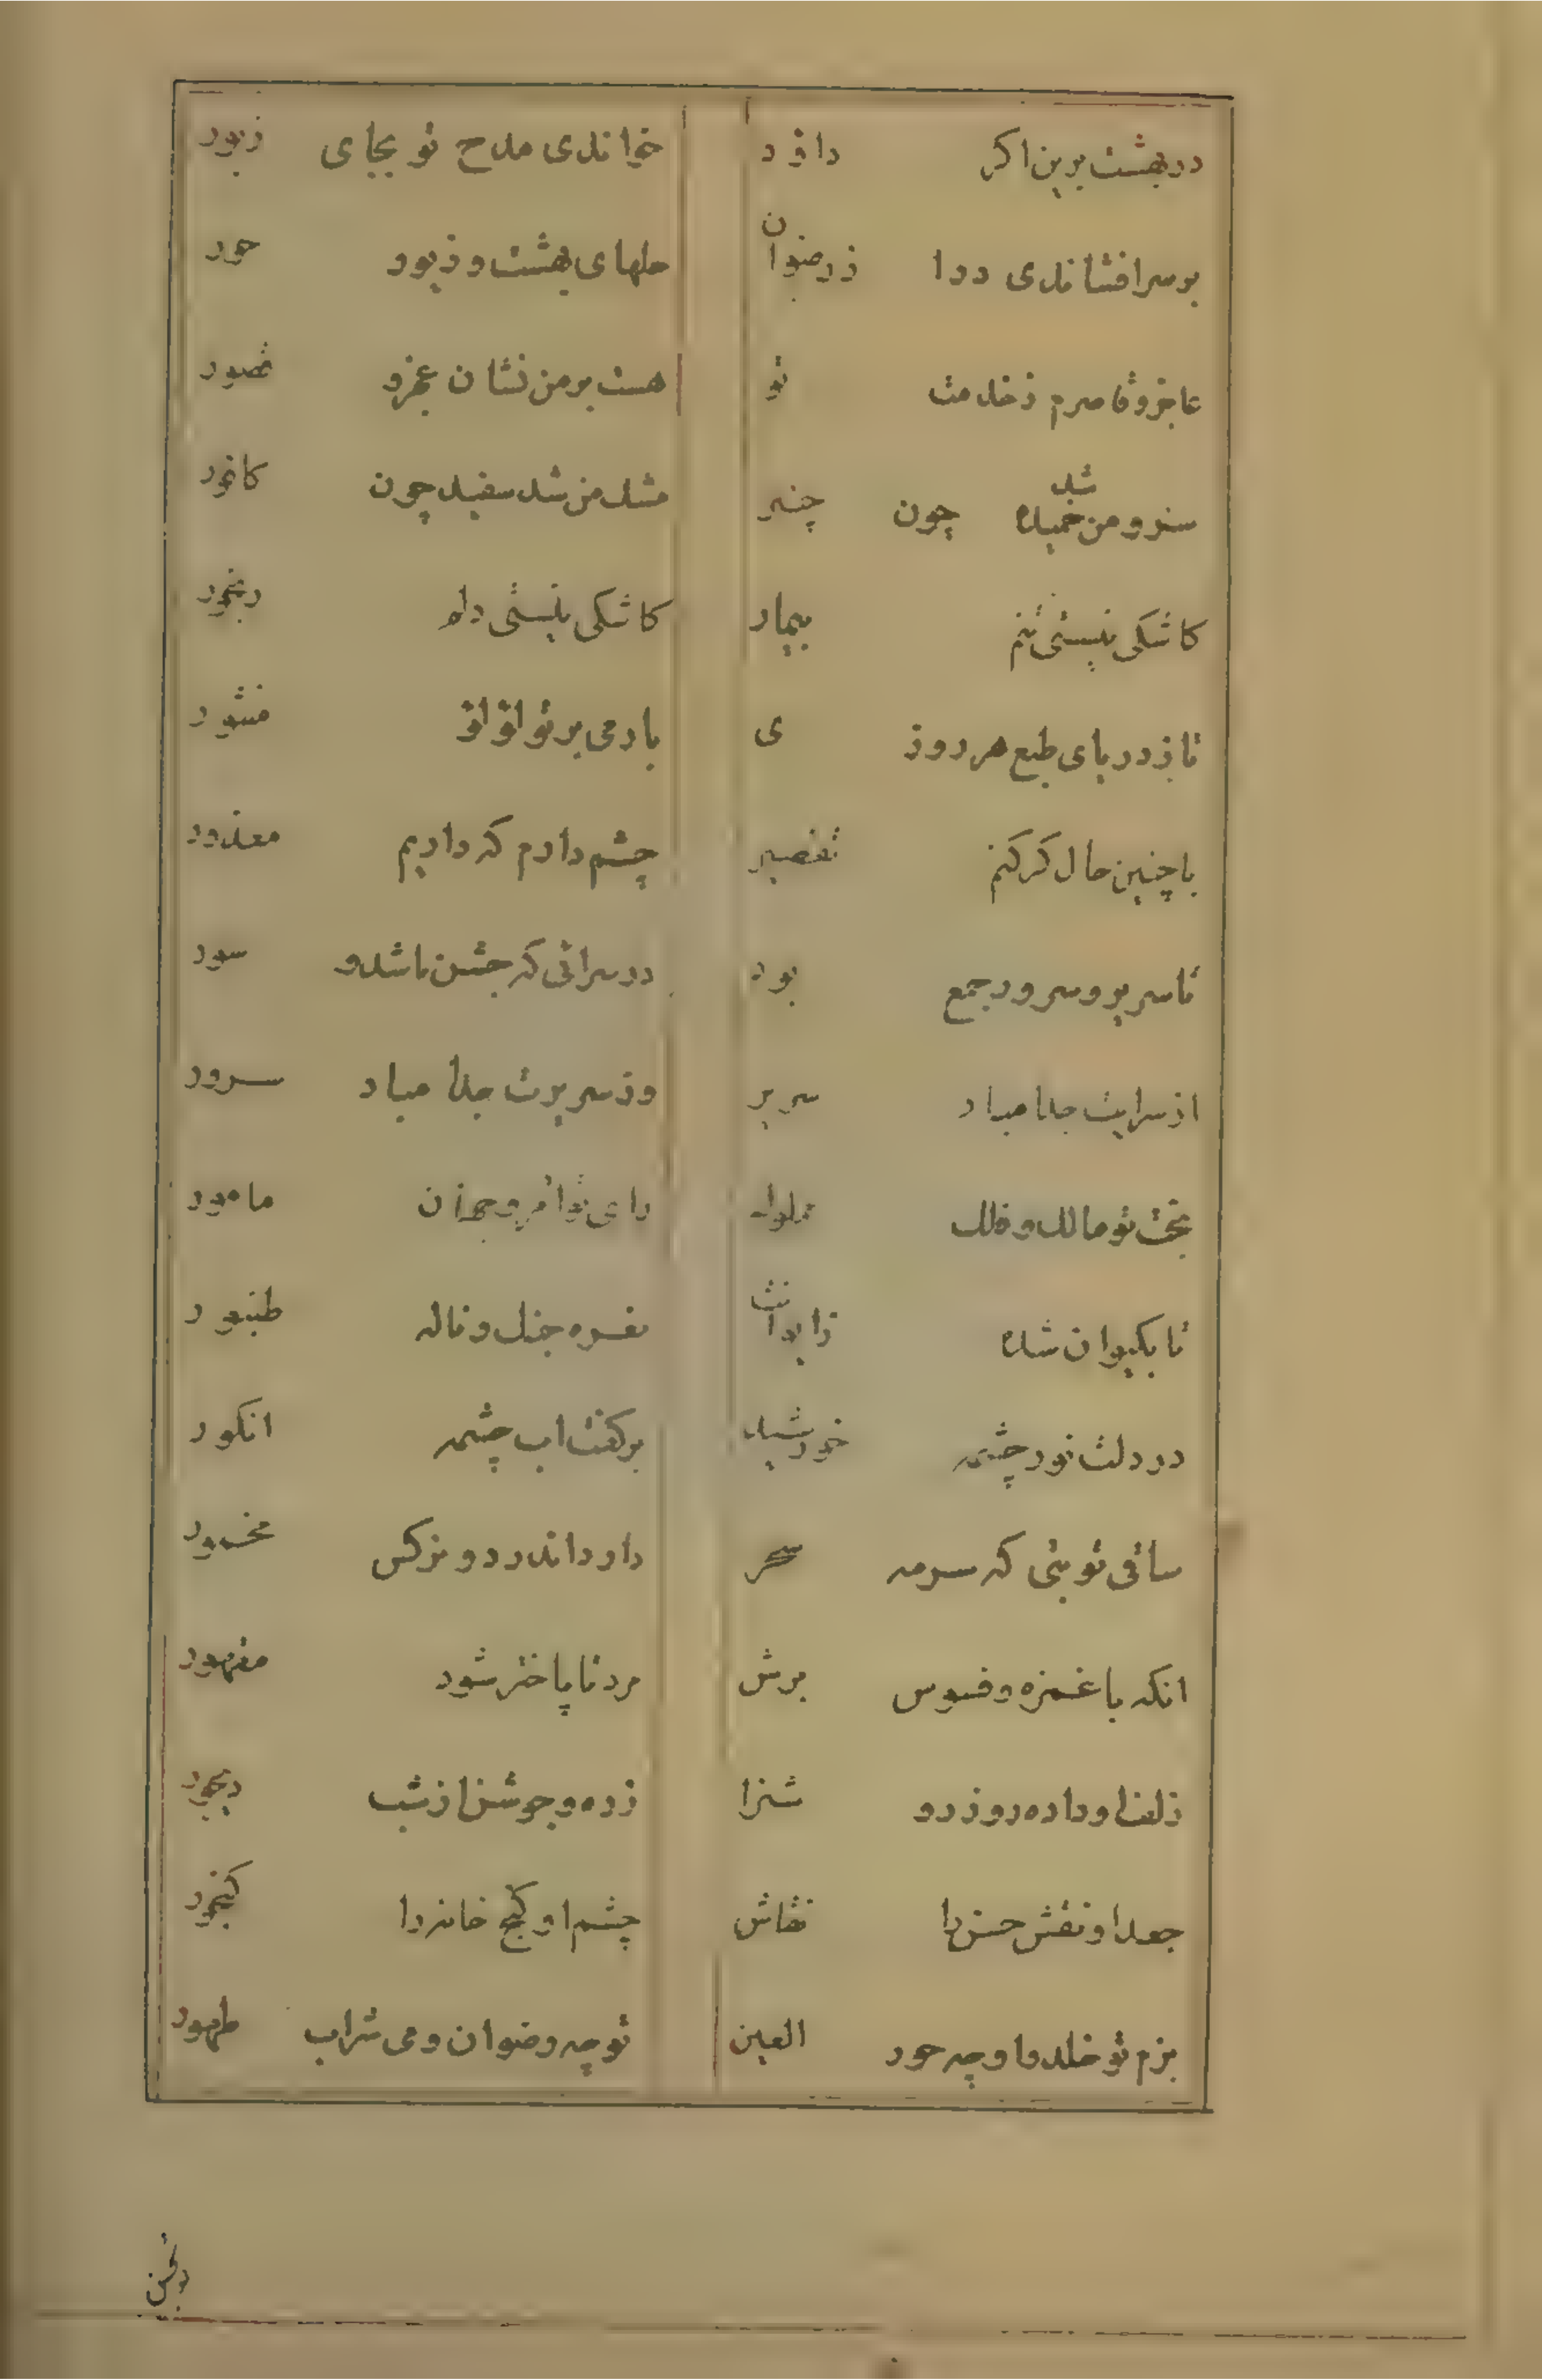 در بهشت برین اکر داود خواندی مدح تو بجای زبور
بر سر افشاندی ددا زرضوان حلهای بهشت و زیور حور
عاجز و قاصرم ز خدمت تو هست بر من نشان عجز و قصور
سرو من خمیده شد چون چنبر مشک من شد سفید چون کافور
کاشکی نیستی تنم بیمار کاشکی نیستی دلم رنجور
تا ز دریای طبع هر روزی بارمی بر تو لؤلؤ منثور
با چنین حال کر کنم تقصیر چشم دارم که داریم معذور
تا سریر و سرور جمع بود در سرائی که جشن باشد و سور
از سرایت جدا مباد سریر وز سریرت جدا مباد سرور
بخت تو مالک و فلک مملوک رای تو امر و جهان مامور
تا بکیوان شده ز ایوانت نغمه چنک و ناله طنبور
در دلت نور چشمه خورشید بر کفت اب چشمه انکور
ساقی تو بتی که سرمه سحر دارد اندر دو نرکس مخمور
انکه با غمزه و فسوس برش مرد ناپاختر شود مقهور
زلف او داده روز روشن را زره و جوشن از شب دیجور
جعد او نقش حسن را نقاش چشم او کنج خانه را کنجور
بزم تو خلد و او چه حور العین تو چه رضوان و می شراب طهور